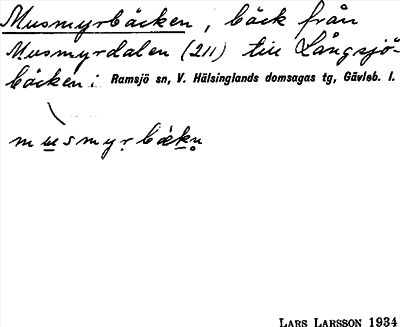 Musmyrbäcken, bäck från
Musmyrdalen (211) till Långsjö-
bäcken i Ramsjö sn, V. Hälsinglands domsagas tg, Gävleb. l.
musmyrbäkn
LARS LARSSON 1934